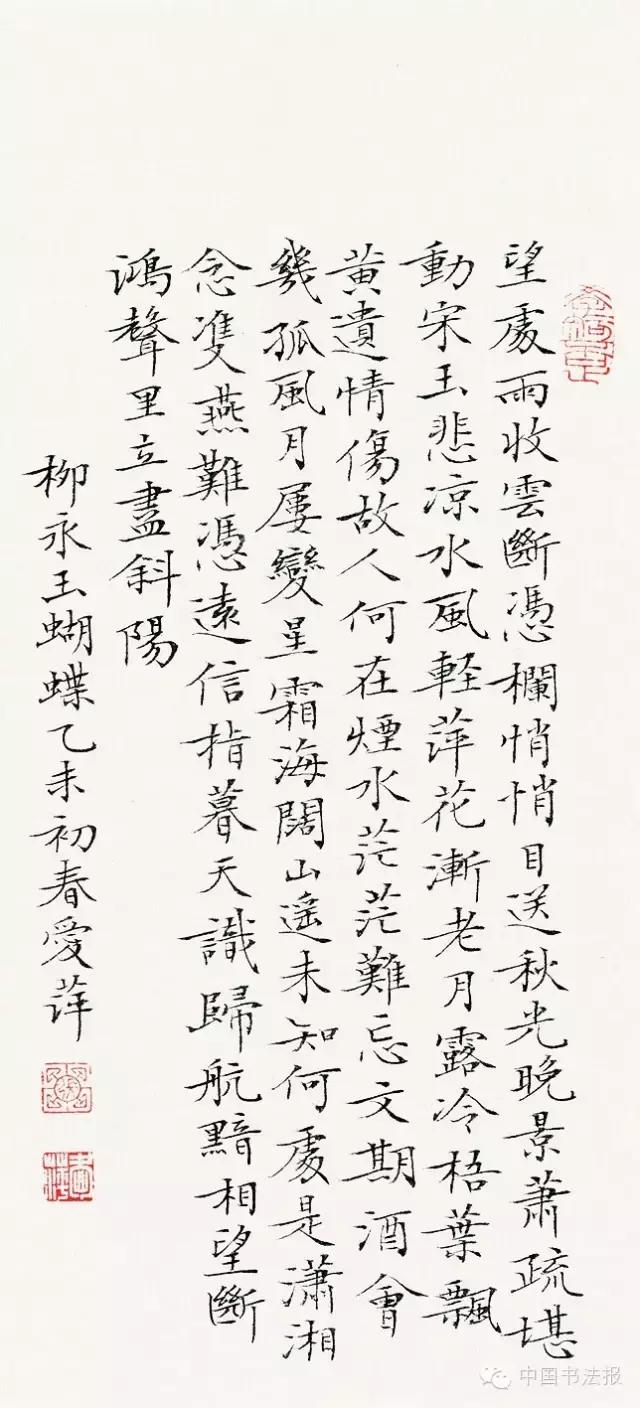 望處雨收雲斷憑欄悄悄目送秋光晚景蕭疏堪
動宋玉悲涼水風軽萍花漸老月露冷梧葉飄
黄遺情傷故人何在煙水茫茫難忘文期酒會
幾孤風月屢變星霜海闊山遥未知何處是瀟湘
念雙燕難憑遠信指暮天識歸航黯相望斷
鴻聲里立盡斜陽
柳永玉蝴蝶乙未初春愛萍
中国书法报